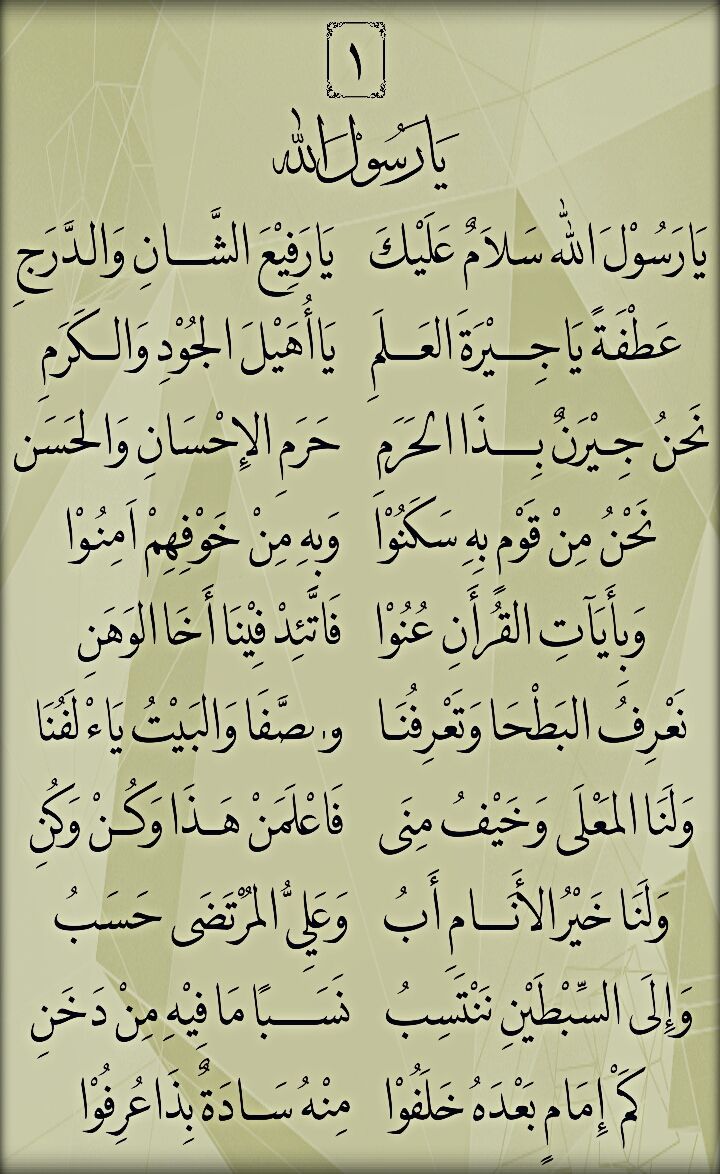 ١
يَارَسُوْلَ الله
يَارَسُوْلَ الله سَلاَمٌ عَلَيْكَ يَارَفِيْعَ الشَّانِ وَالدَّرَجِ
عَطْفَةً يَاجِيْرَةَ العَلَمِ يَاأُهَيْلَ الجُوْدِ وَالكَرَمِ
نَحنُ جِيْرَنٌ بِذَا الحَرَمِ حَرَمِ الإِحْسَانِ وَالحَسَن
نَحْنُ مِنْ قَوْمٍ بِهِ سَكَنُوْا وَبِهِ مِنْ خَوْفِهِمْ اَمِنُوْا
وَبِأَيَآتِ القُرْأَنِ عُنُوْا فَاتَّئِدْ فِيْنَا أَخَا الوَهَنِ
نَعْرِفُ البَطْحَا وَتَعْرِفُنَا وَالصَّفَا وَالبَيْتُ يَاءْلَفُنَا
وَلَنَا المَعْلَى وَخَيْفُ مِنَى فَاعْلَمَنْ هَذَا وَكُنْ وَكُنِ
وَلَنَا خَيْرُ الأَنَامِ أَبُ وَعَلِيُّ المُرْتَضَى حَسَبُ
وَإِلَى السِّبْطَيْنِ نَنْتَسِبُ نَسَبًا مَا فِيْهِ مِنْ دَخَنِ
كَمْ إِمَامٍ بَعْدَهُ خَلَفُوْا مِنْهُ سَادَةٌ بِذَا عُرِفُوْا